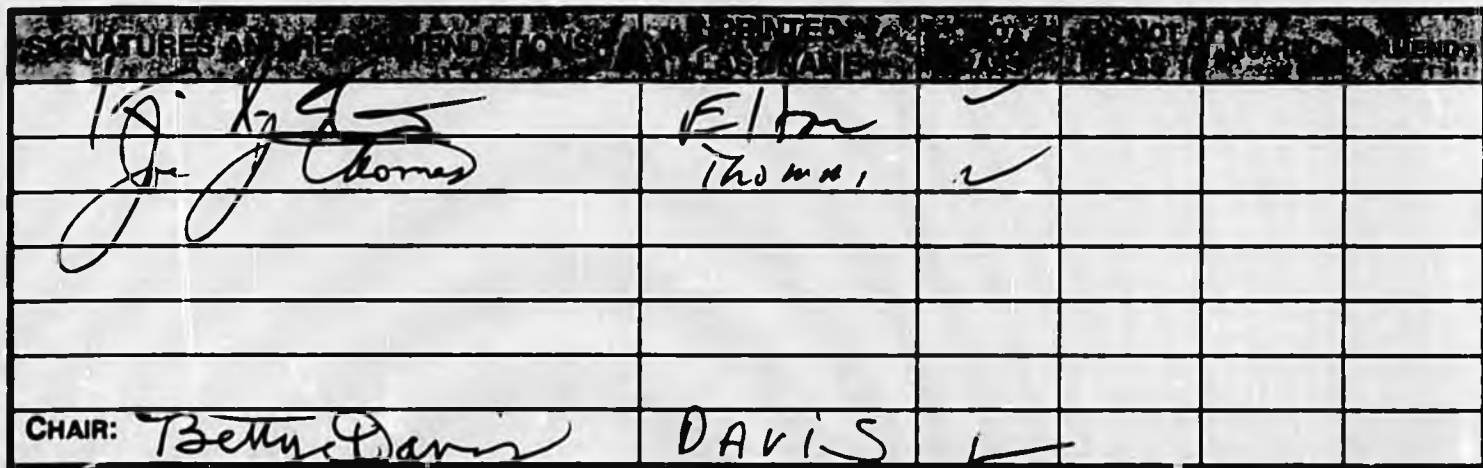 SIGNATURES AND RECOMMENDATIONS PRINTED LAST NAME DO PASS DO NOT PASS AMEND
Elton
Joe J Thomas Thomas
CHAIR: Bettye Davis DAVIS